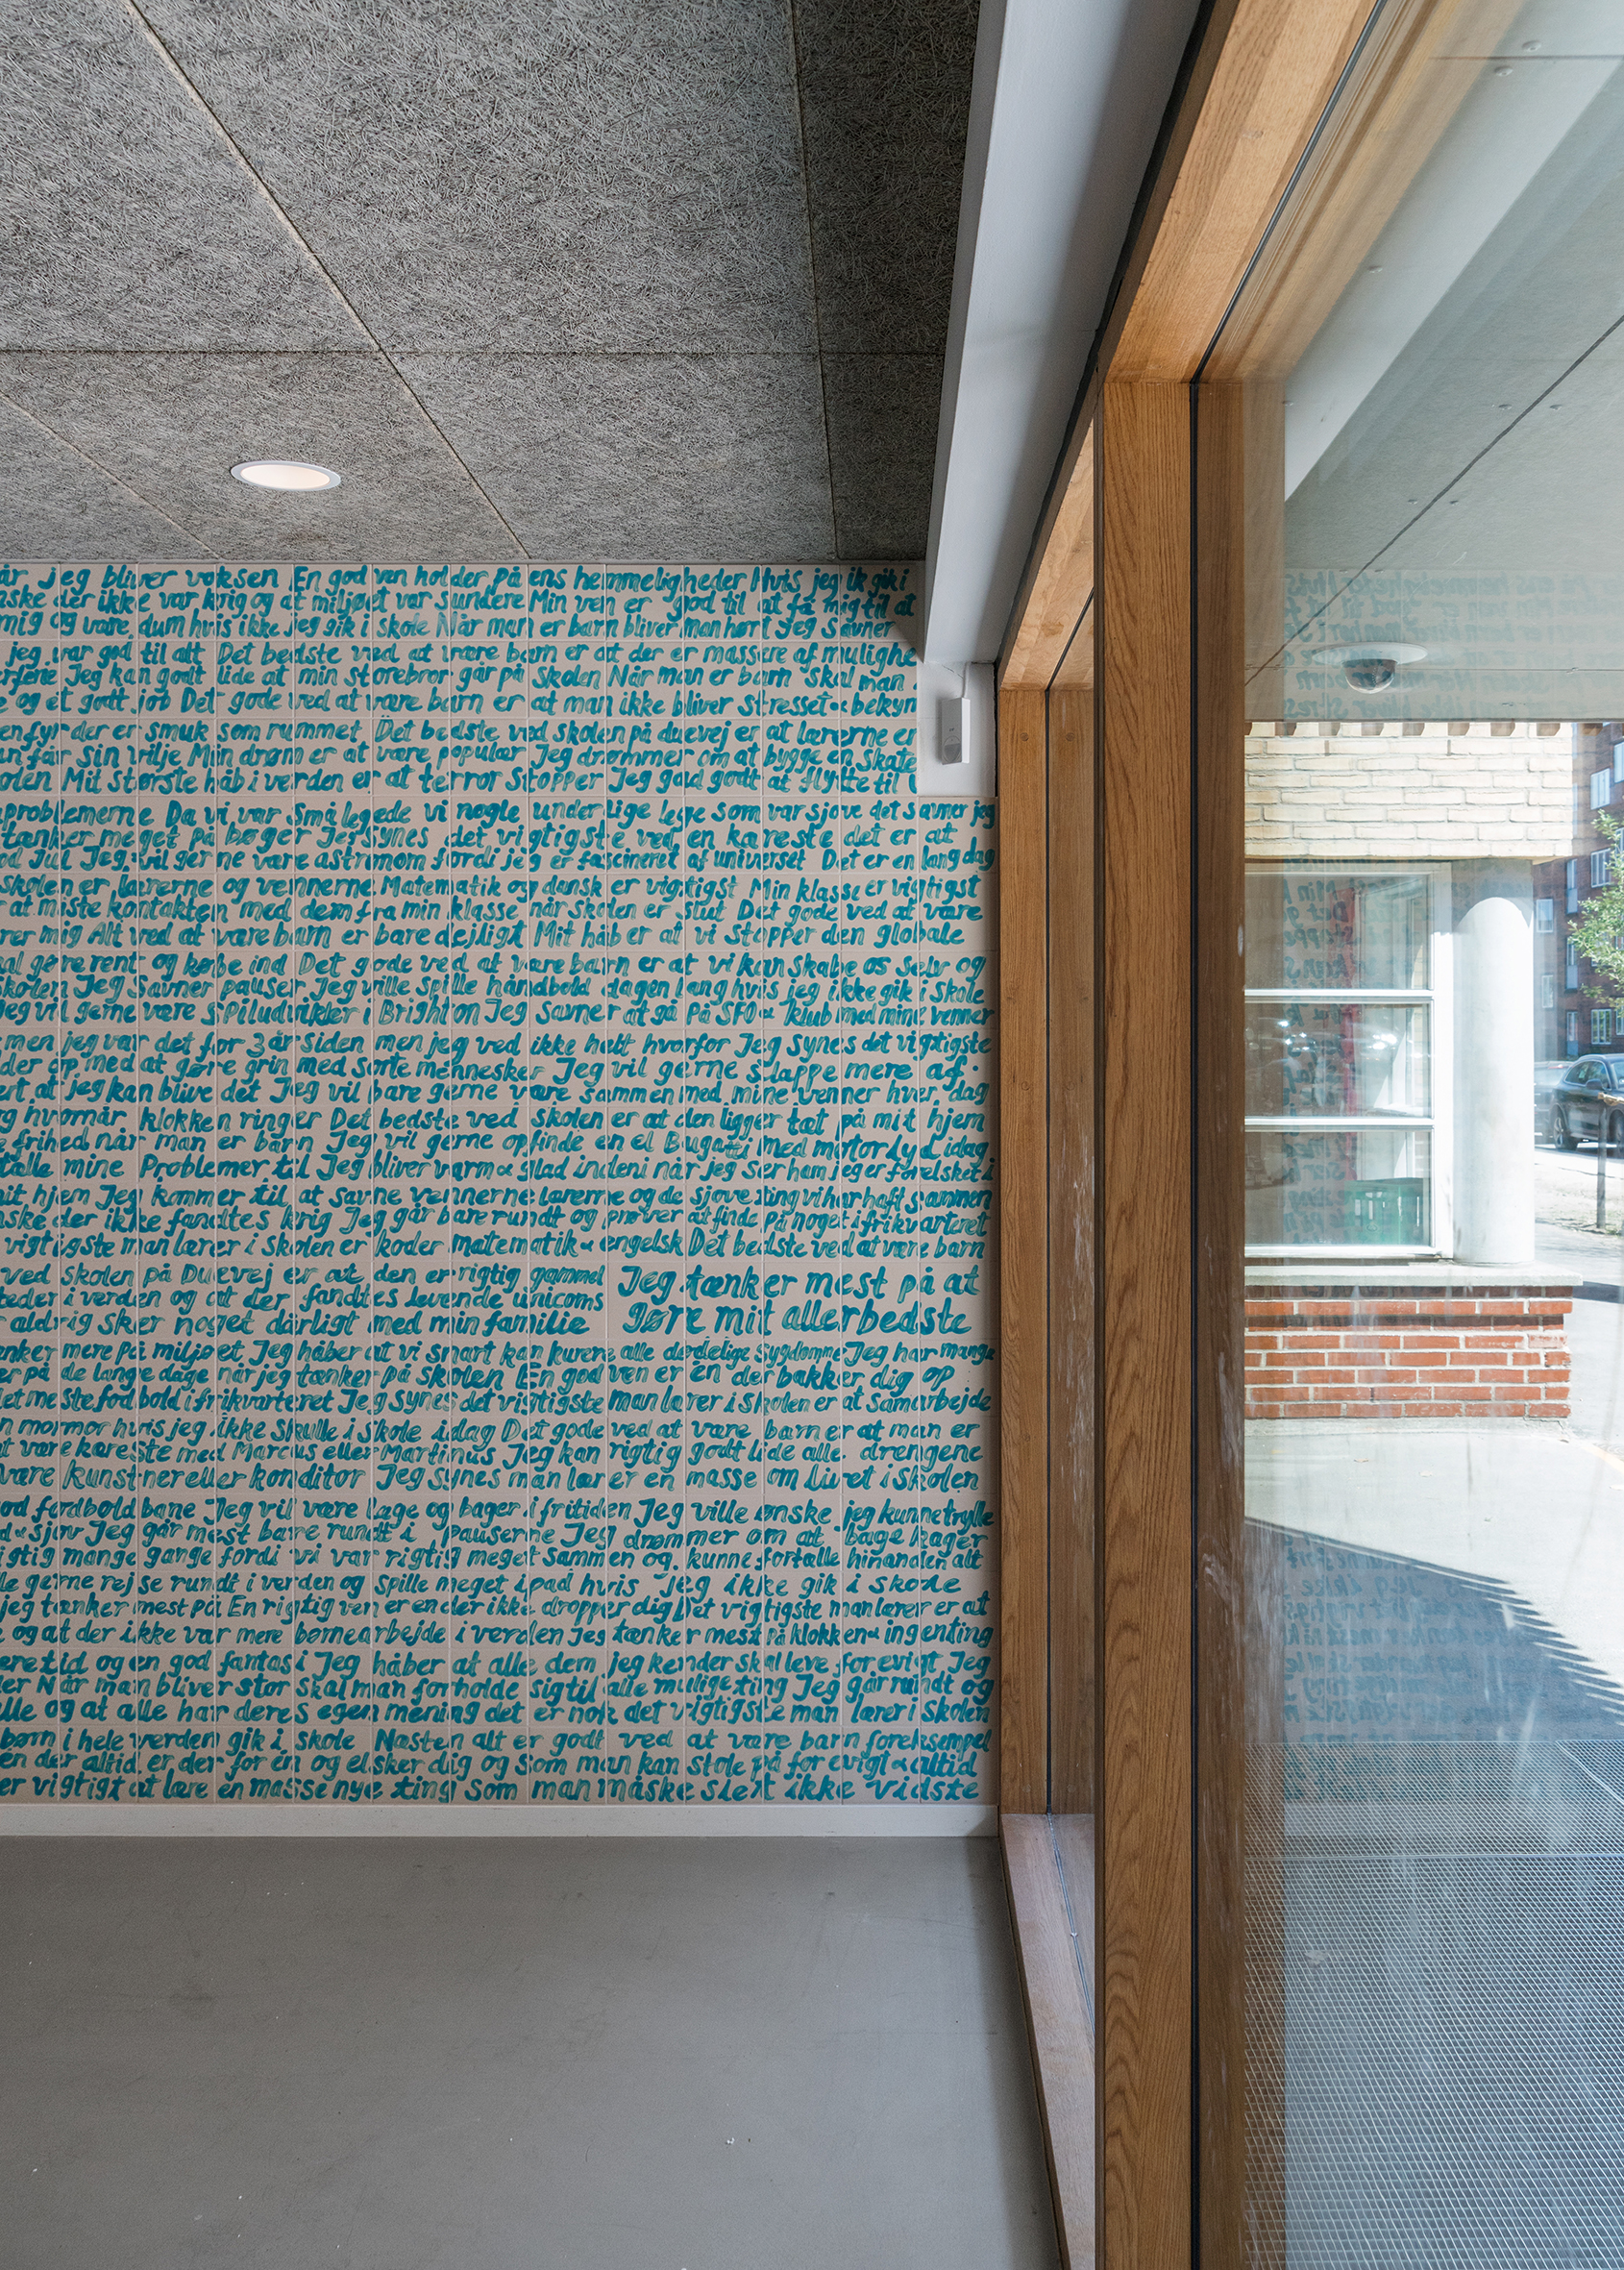 år jeg bliver voksen En god ven holder på ens hemmeligheder Hvis jeg ik gik i
nske der ikke var krig og at miljøet var sundere Min ven er god til at få mig til at
mig og være dum hvis ikke jeg gik i skole Når man er barn bliver man hørt Jeg savner
jeg var god til alt Det bedste ved at være barn er at der er massere af mulighe
erfene Jeg kan godt lide at min storebror går på skolen Når man er barn skal man
e og et godt job Det gode ved at være barn er at man ikke bliver stresset & bekyn
en fyr der er smuk som rummet Det bedste ved skolen på duevej er at lærerne er
un får sin vilje Min drøm er at være populær Jeg drømmer om at bygge en skate
olen Mit største håb i verden er at terror stopper Jeg gad godt at flytte til
problemerne Da vi var små legede vi nogle underlige lege som var sjove det savner jeg
tænker meget på bøger Jeg synes det vigtigste ved en kæreste det er at
od Jul Jeg vil gerne være astronom fordi jeg er fascineret af universet Det er en lang dag
skolen er lærerne og vennerne Matematik og dansk er vigtigst Min klasse er vigtigst
r at miste kontakten med dem fra min klasse når skolen er slut Det gode ved at være
rer mig Alt ved at være barn er bare dejligt Mit håb er at vi stopper den globale
al gøre rent og købe ind Det gode ved at være barn er at vi kan skabe os selv og
skolen Jeg savner pauser Jeg ville spille håndbold dagen lang hvis jeg ikke gik i skole
Jeg vil gerne være spiludvikler i Brighton Jeg savner at gå på SFO & klub med mine venner
men jeg var det for 3 år siden men jeg ved ikke helt hvorfor Jeg synes det vigtigste
der op med at gøre grin med sorte mennesker Jeg vil gerne slappe mere af
ert at jeg kan blive det Jeg vil bare gerne være sammen med mine venner hver dag
g hvornår klokken ringer Det bedste ved skolen er at den ligger tæt på mit hjem
e frihed når man er barn Jeg vil gerne opfinde en el Bugatti med motorlyd idag
tælle mine problemer til Jeg bliver varm & glad indeni når jeg ser ham jeg er forelsket i
mit hjem Jeg kommer til at savne vennerne lærerne og de sjove ting vi har haft sammen
nske der ikke fandtes krig Jeg går bare rundt og prøver at finde på noget i frikvarteret
vigtigste man lærer i skolen er koder matematik & engelsk Det bedste ved at være barn
ved skolen på Duevej er at den er rigtig gammel Jeg tænker mest på at
teder i verden og at der fandtes levende unicorns gøre mit allerbedste
aldrig sker noget dårligt med min familie
enker mere på miljøet Jeg håber at vi snart kan kurere alle dødelige sygdomme Jeg har mange
er på de lange dage når jeg tænker på skolen En god ven er én der bakker dig op
let meste fodbold i frikvarteret Jeg synes det vigtigste man lærer i skolen er at samarbejde
n mormor hvis jeg ikke skulle i skole idag Det gode ved at være barn er at man er
at være kæreste med Marcus eller Martinus Jeg kan rigtig godt lide alle drengene
være kunstner eller konditor Jeg synes man lærer en masse om livet i skolen
od fodboldbane Jeg vil være læge og bager i fritiden Jeg ville ønske jeg kunne trylle
d & sjov Jeg går mest bare rundt i pauserne Jeg drømmer om at bage kager
igtig mange gange fordi vi var rigtig meget sammen og kunne fortælle hinanden alt
le gerne rejse rundt i verden og spille meget ipad hvis jeg ikke gik i skole
jeg tænker mest på En rigtig ven er en der ikke dropper dig Det vigtigste man lærer er at
e og at der ikke var mere børnearbejde i verden Jeg tænker mest på klokken & ingenting
eretid og en god fantasi Jeg håber at alle dem jeg kender skal leve for evigt Jeg
ler Når man bliver stor skal man forholde sig til alle mulige ting Jeg går rundt og
lle og at alle har deres egen mening det er nok det vigtigste man lærer i skolen
børn i hele verden gik i skole Næsten alt er godt ved at være barn foreksempel
en der altid er der for én og elsker dig og som man kan stole på for evigt & altid
er vigtigt at lære en masse nye ting som man måske slet ikke vidste